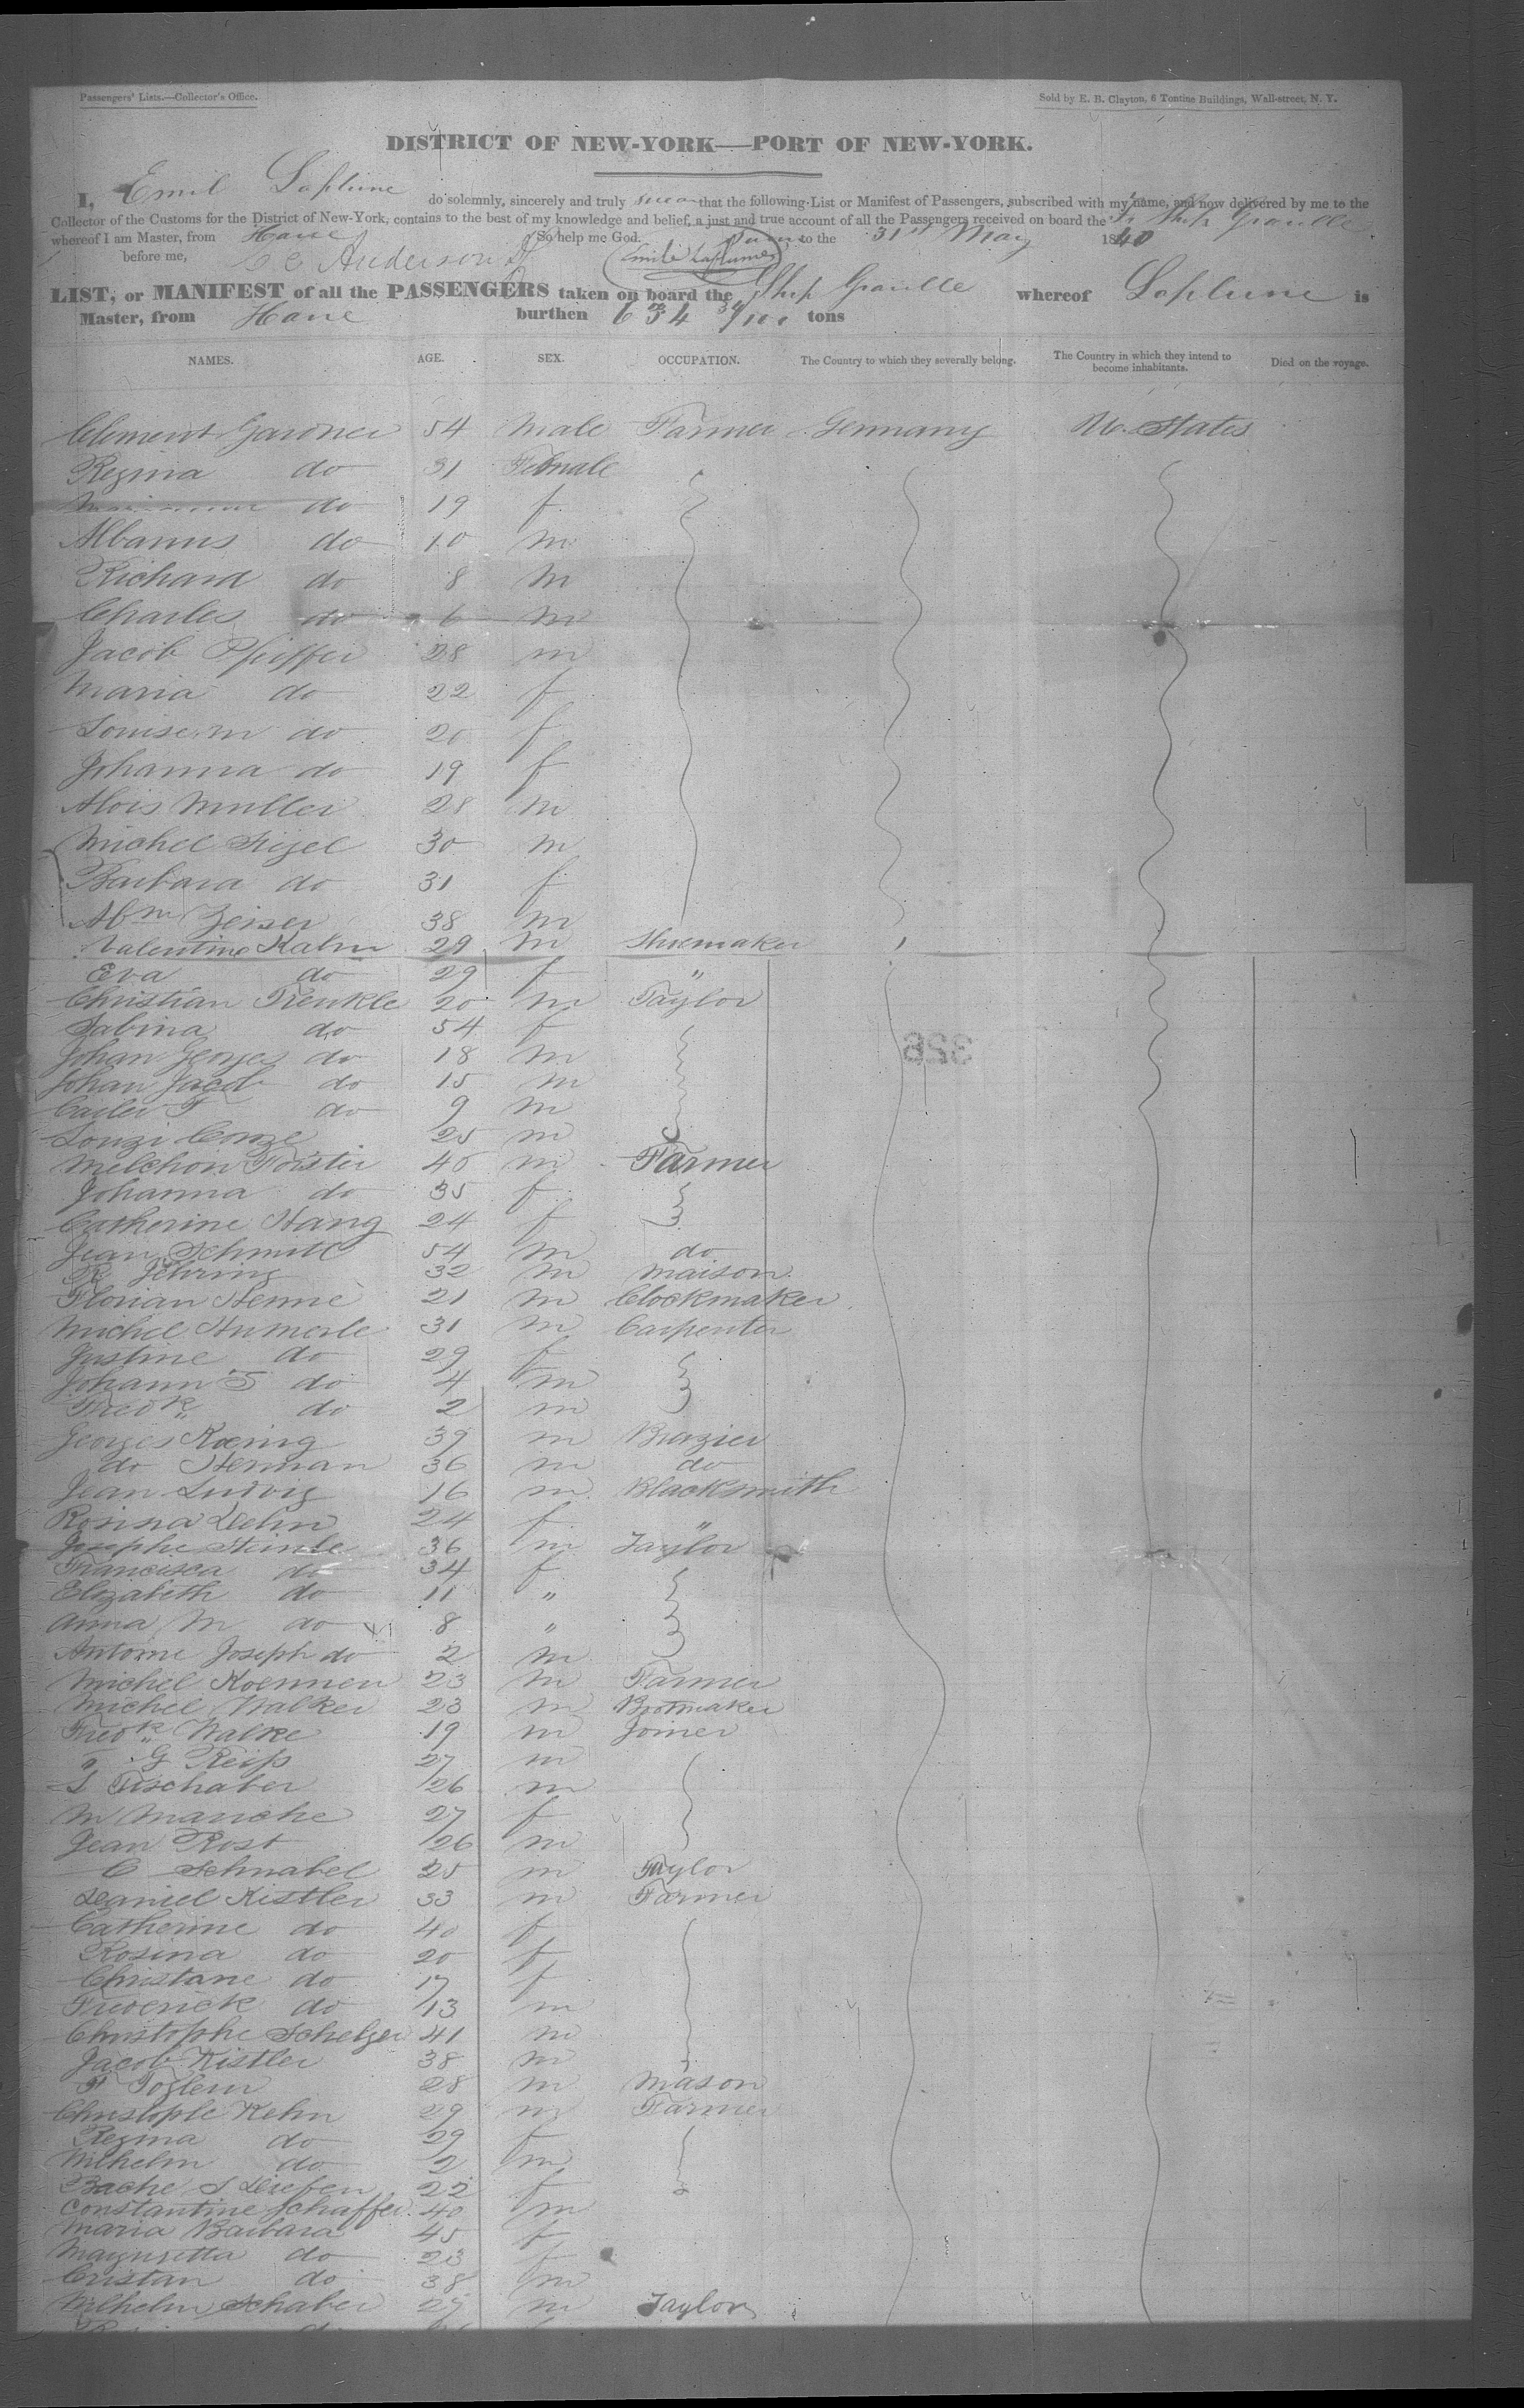 Passengers' Lists.—Collector's Office.
Sold by E. B. Clayton, 6 Tontine Buildings, Wall-street, N. Y.
DISTRICT OF NEW-YORK—PORT OF NEW-YORK.
I, Emil Laplume do solemnly, sincerely and truly swear that the following List or Manifest of Passengers, subscribed with my name, and now delivered by me to the
Collector of the Customs for the District of New-York, contains to the best of my knowledge and belief, a just and true account of all the Passengers received on board the Fr Ship Graville
whereof I am Master, from Havre So help me God. Sworn to the 31st May 1840
before me, Anderson Emile Laplume
LIST, or MANIFEST of all the PASSENGERS taken on board the Ship Graville whereof Laplume is
Master, from Havre burthen 634 34/100 tons
NAMES. AGE. SEX. OCCUPATION. The Country to which they severally belong. The Country in which they intend to become inhabitants. Died on the voyage.
Clement Gardner 54 Male Farmer Germany U. States
Regina do 31 Female
do 19 f
Albanus do 10 m
Richard do 8 m
Charles do 6 m
Jacob Pfiffer 28 m
Maria do 22 f
Louise M do 20 f
Johanna do 19 f
Alois Muller 28 m
Michel Sigel 30 m
Barbara do 31 f
Abm Zeiser 38 m
Valentine Kalm 29 m Shoemaker
Eva do 29 f "
Christian Trenkle 20 m Taylor
Sabina do 54 f
Johan George do 18 m
Johan Jacob do 15 m
do 9 m
Louzi Conze 25 m
Melchior Forster 40 m Farmer
Johanna do 35 f
Catherine Hang 24 f
Jean Schmitt 54 m do
R Jehring 32 m Maison
Florian Henne 21 m Clockmaker
Michel Humerle 31 m Carpenter
Justine do 29 f
Johann do 4 m
Fredk do 2 m
Georges Kœnig 39 m Brazier
do Herman 36 m do
Jean Ludvig 16 m Blacksmith
Rosina Dehn 24 f "
Josephe Steinle 36 m Taylor
Francisca do 34 f
Elizabeth do 11 "
Anna M do 8 "
Antoine Joseph do 2 m
Michel Koennen 23 m Farmer
Michel Walker 23 m
Fredk Walke 19 m Joiner
" G Reiss 27 m
L Fischaber 26 m
M Manche 27 f
Jean Rost 26 m
C Schnabel 25 m Taylor
Daniel Kistler 33 m Farmer
Catherine do 40 f
Rosina do 20 f
Christane do 17 f
Frederick do 13 m
Christophe Schelzer 41 m
Jacob Kistler 38 m
F 28 m Mason
Christople Kehn 29 m Farmer
Regina do 29 f
Wilhelm do 2 m
Bache S 22 f
Constantine Schaffer 40 m
Maria Barbara 45 f
do 23 f
Cristan do 38 m
Wilhelm Schaber 27 m Taylor
326